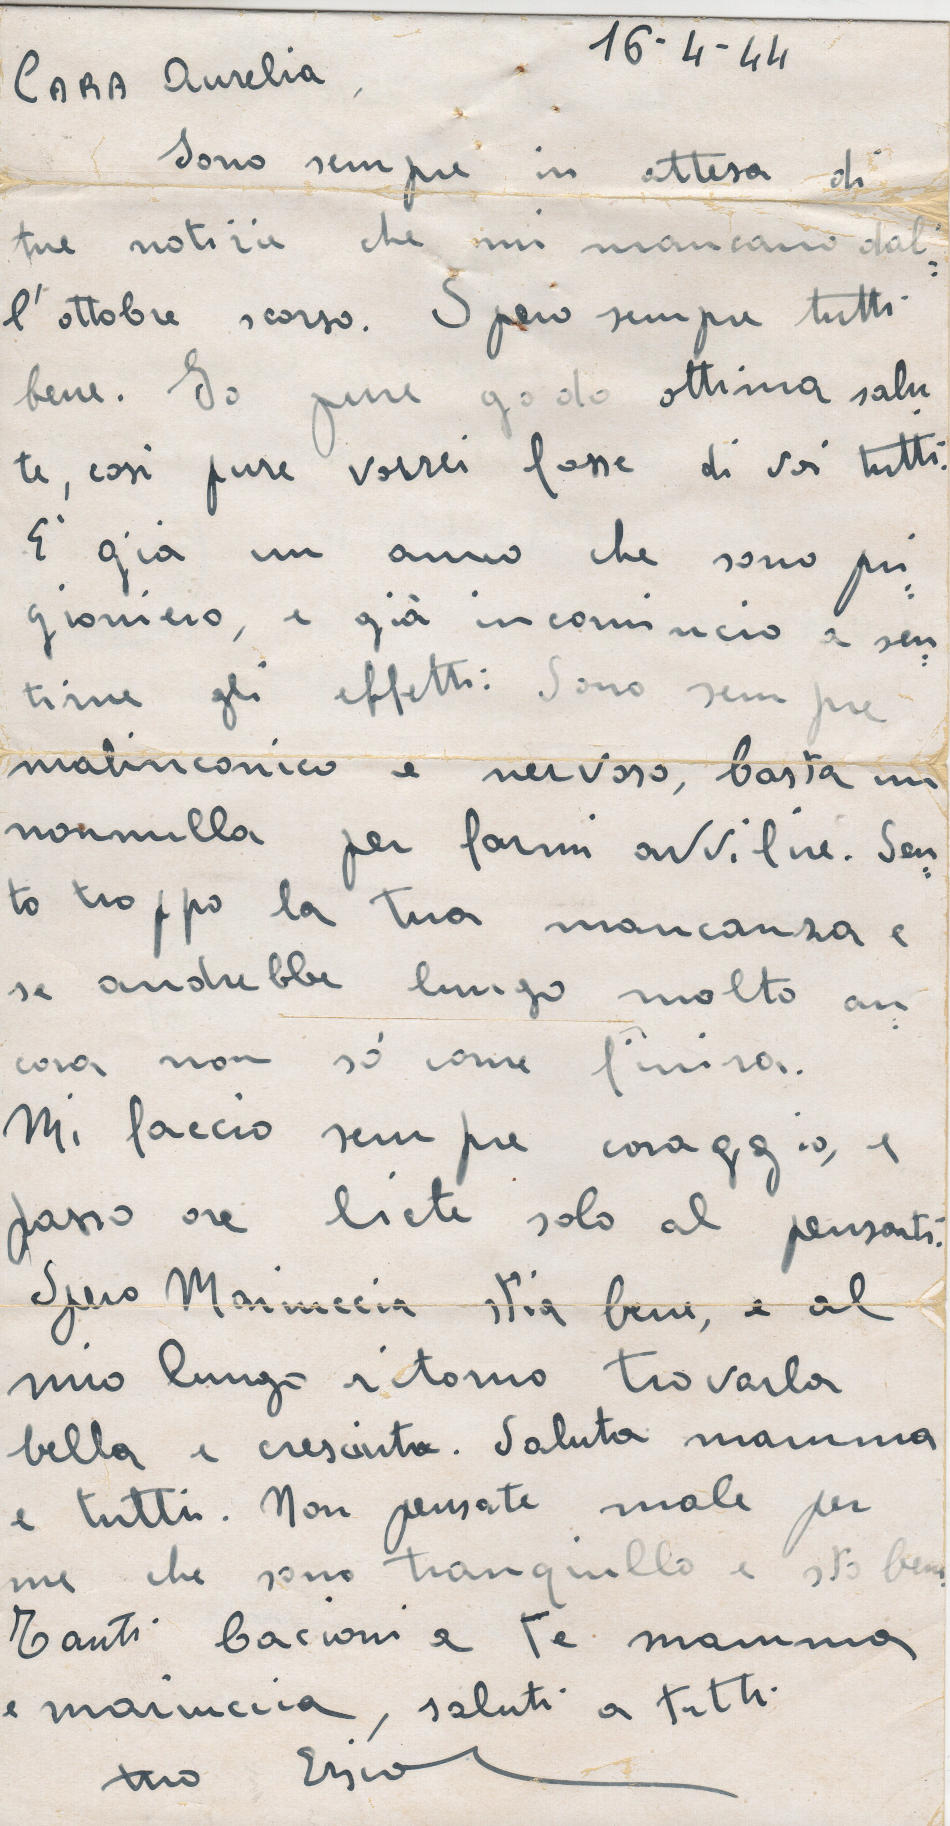 16-4-44
CARA Aurelia,
Sono sempre in attesa di
tue notizie che mi mancano dal=
l'ottobre scorso. Spero sempre tutti
bene. Io pure godo ottima salu
te, così pure vorrei fosse di voi tutti.
E' già un anno che sono pri=
gioniero, e già incomincio a sen=
tirne gli effetti. Sono sempre
malinconico e nervoso, basta un
nonnulla per farmi avvilire. Sen=
to troppo la tua mancanza e
se andrebbe lungo molto an=
cora non sò come finirà.
Mi faccio sempre coraggio, e
passo ore liete solo al pensarti.
Spero Mariuccia stia bene, e al
mio lungo ritorno trovarla
bella e cresciuta. Saluta mamma
e tutti. Non pensate male per
me che sono tranquillo e stò bene.
Tanti bacioni a Te mamma
e mariuccia, saluti a tutti
tuo